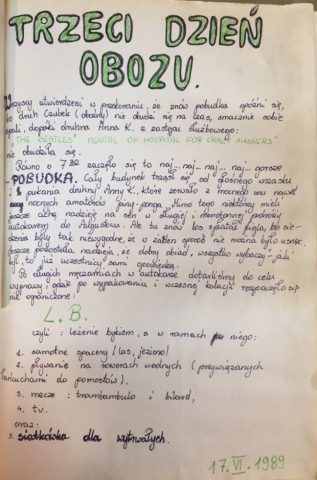 TRZECI DZIEŃ
OBOZU.
Wszyscy utwierdzeni w przekonaniu, że znów pobudka opóźni się,
bo druh (oboźny) nie obudzi się na czas, smacznie sobie
spali, dopóki druhna Anna K. z zastępu służbowego:
"THE BEATLES' MENTAL OF HOSPITAL FOR CRAZY SINGERS"
nie obudziła się.
Równo o 7³² zaczęło się to naj... naj... naj... naj... gorsze
POBUDKA. Cały budynek trząsł się od głośnego wrzasku
i pukania druhny Anny K, które zerwało z mocnego snu nawet
nocnych amatorów ping-ponga. Mimo tego niektórzy mieli
jeszcze cichą nadzieję na sen w długiej i monotonnej podróży
autokarem do Augustowa. Ale tu znów los spłatał figla, bo sie-
dzenia były tak niewygodne, że w żaden sposób nie można było usnąć.
Jeszcze pozostała nadzieja, że dobry obiad, wszystko wybaczy - jaki
był to już uczestnicy sami opowiedzą.
Po długich męczarniach w autokarze dotarliśmy do celu
wyprawy, gdzie po wypakowaniu i wczesnej kolacji rozpoczęło się
nie ograniczone:
L. B.
czyli: leżenie bykiem, a w ramach niego:
1. samotne spacery (las, jezioro)
2. pływanie na rowerach wodnych (przywiązanych
łańcuchami do pomostów),
3. mecze: trambambulo i bilard,
4. tv.
oraz:
5. siatkówka dla wytrwałych.
17.VI.1989